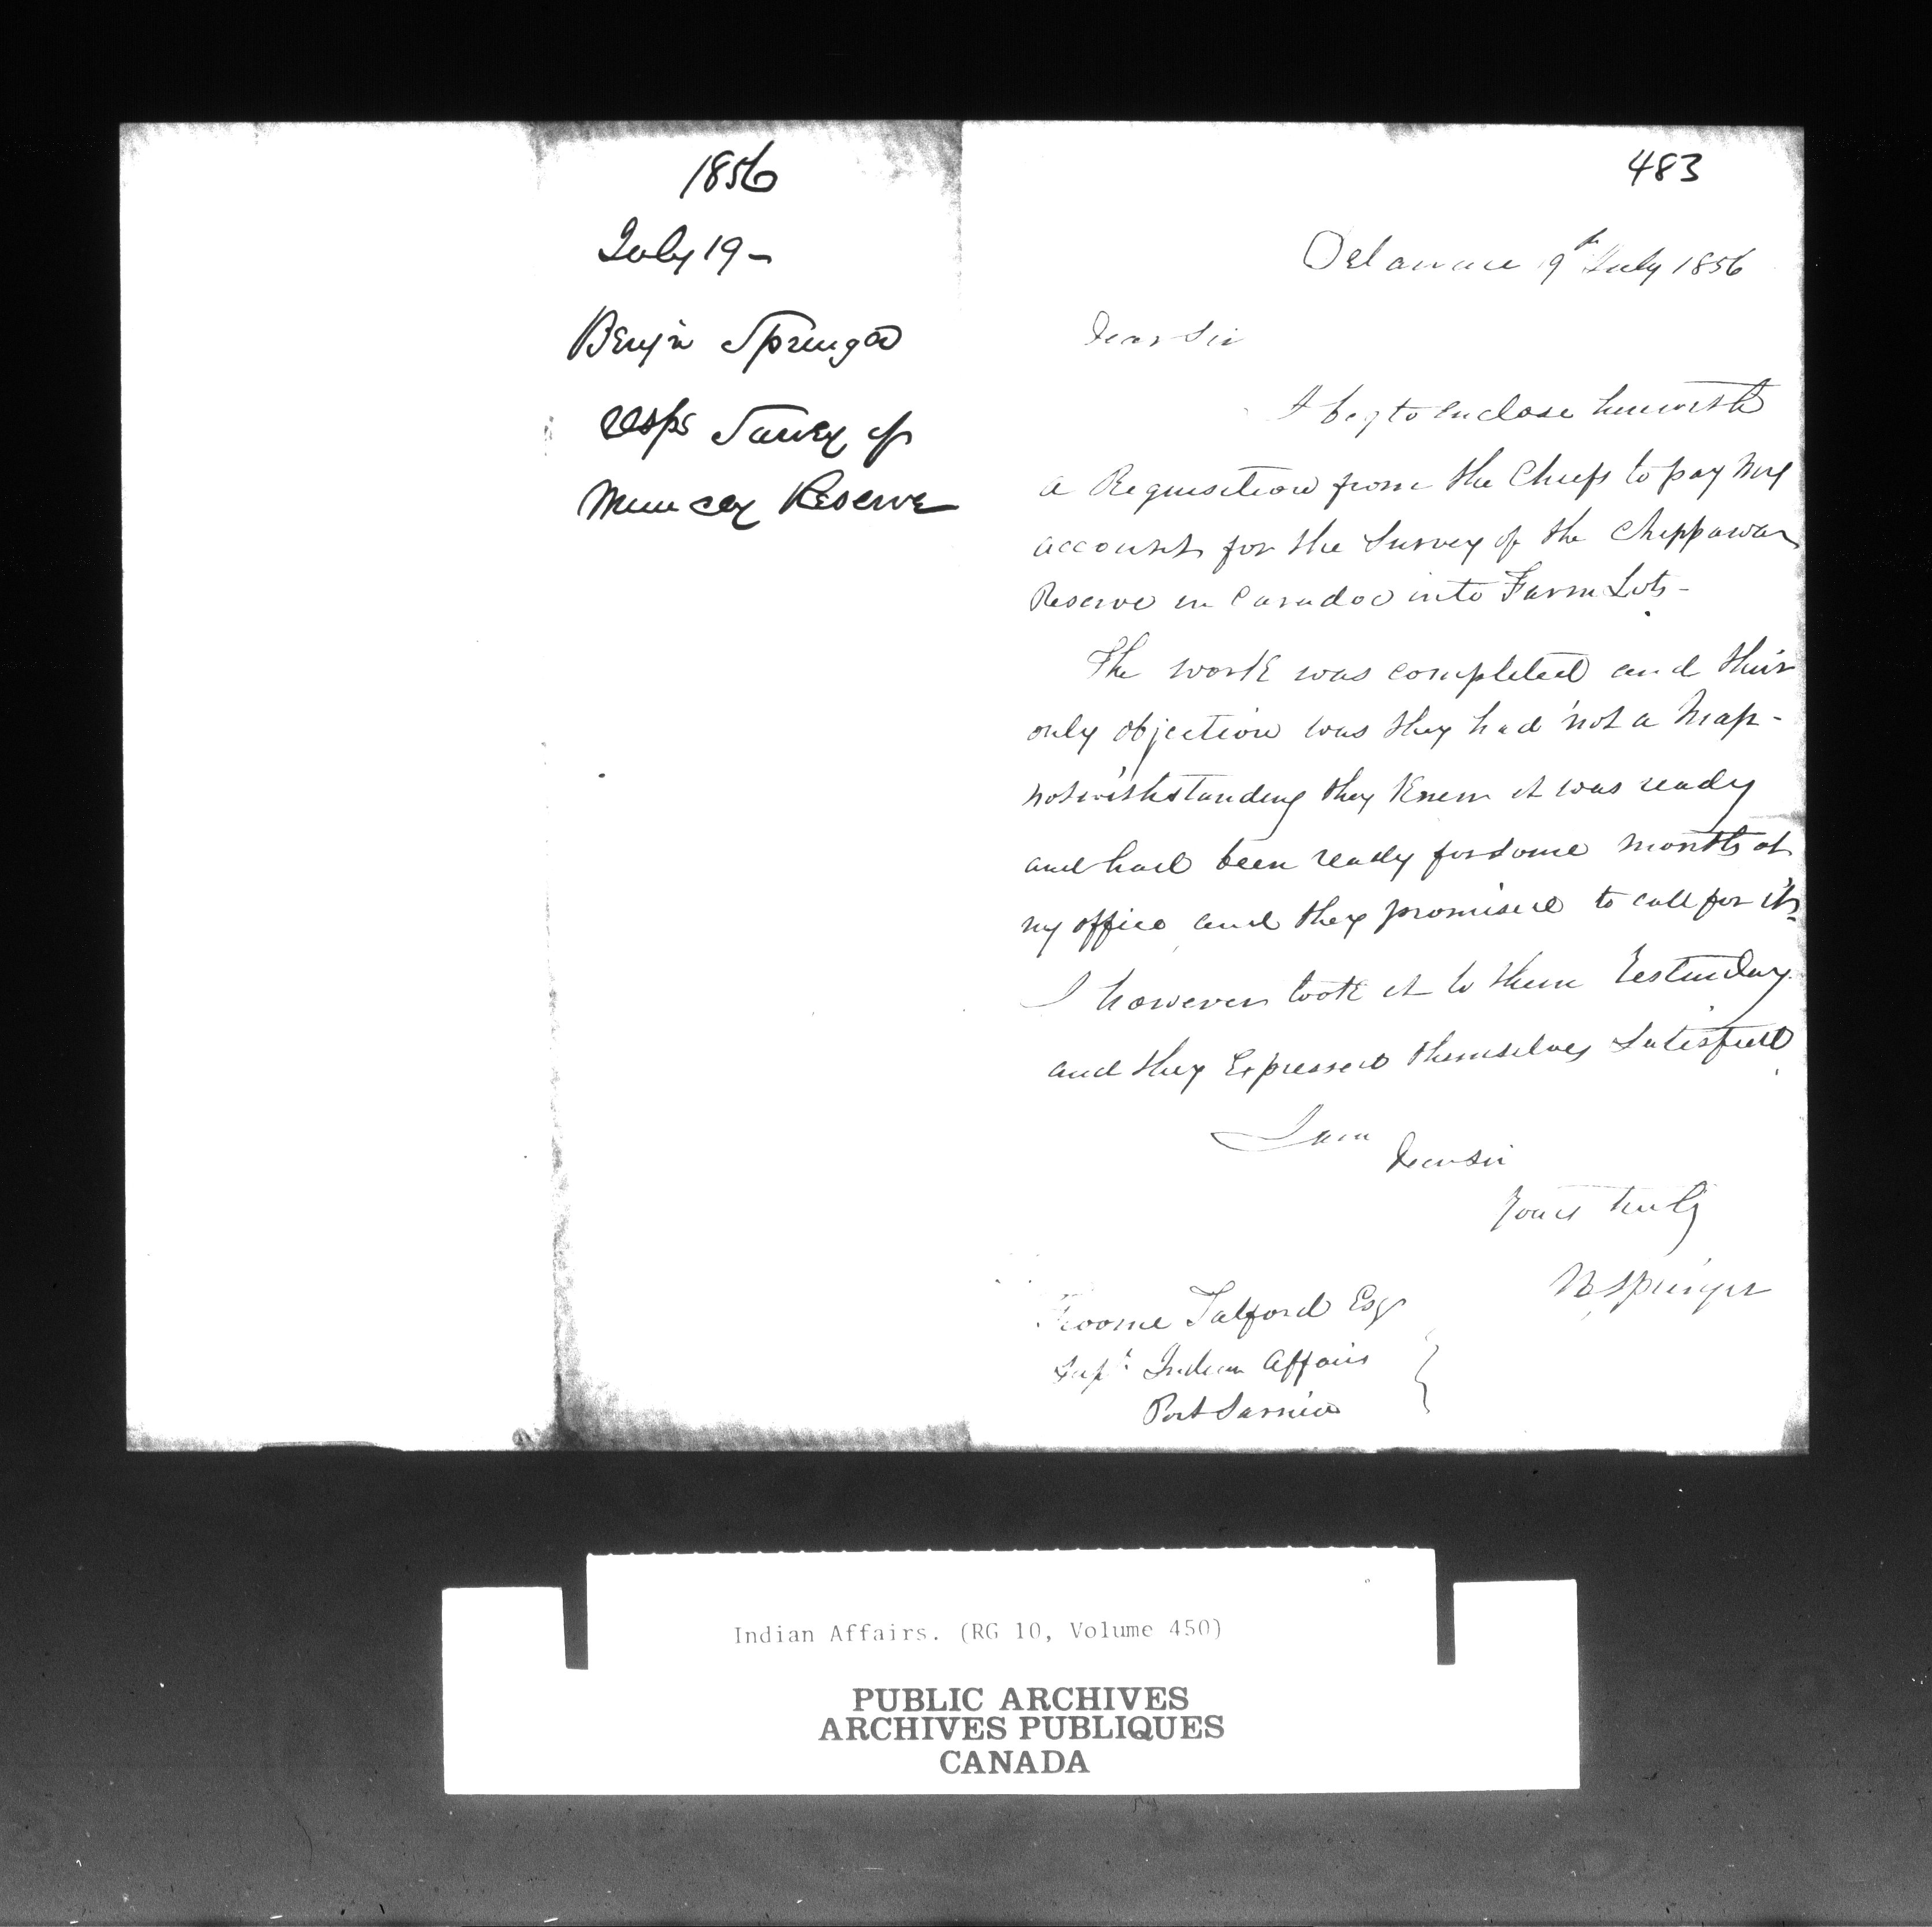 1856
July 19 -
Benjn Springer
resps Survey of
Muncey Reserve
483
Delaware 19th July 1856
Dear Sir
I beg to enclose herewith
a Requisition from the Chiefs to pay my
account for the Survey of the Chippawas
Reserve in Caradoc into Farm Lots -
The work was completed and their
only objection was they had not a Map -
notwithstanding they knew it was ready
and had been ready for some months at
my office and they promised to call for it
I however took it to them Yesterday
and they Expressed themselves Satisfied
I am
Dear Sir
Yours truly
B Springer
Froome Talford Esqr
Supt Indian Affairs
Port Sarnia
Indian Affairs. (RG 10, Volume 450)
PUBLIC ARCHIVES
ARCHIVES PUBLIQUES
CANADA